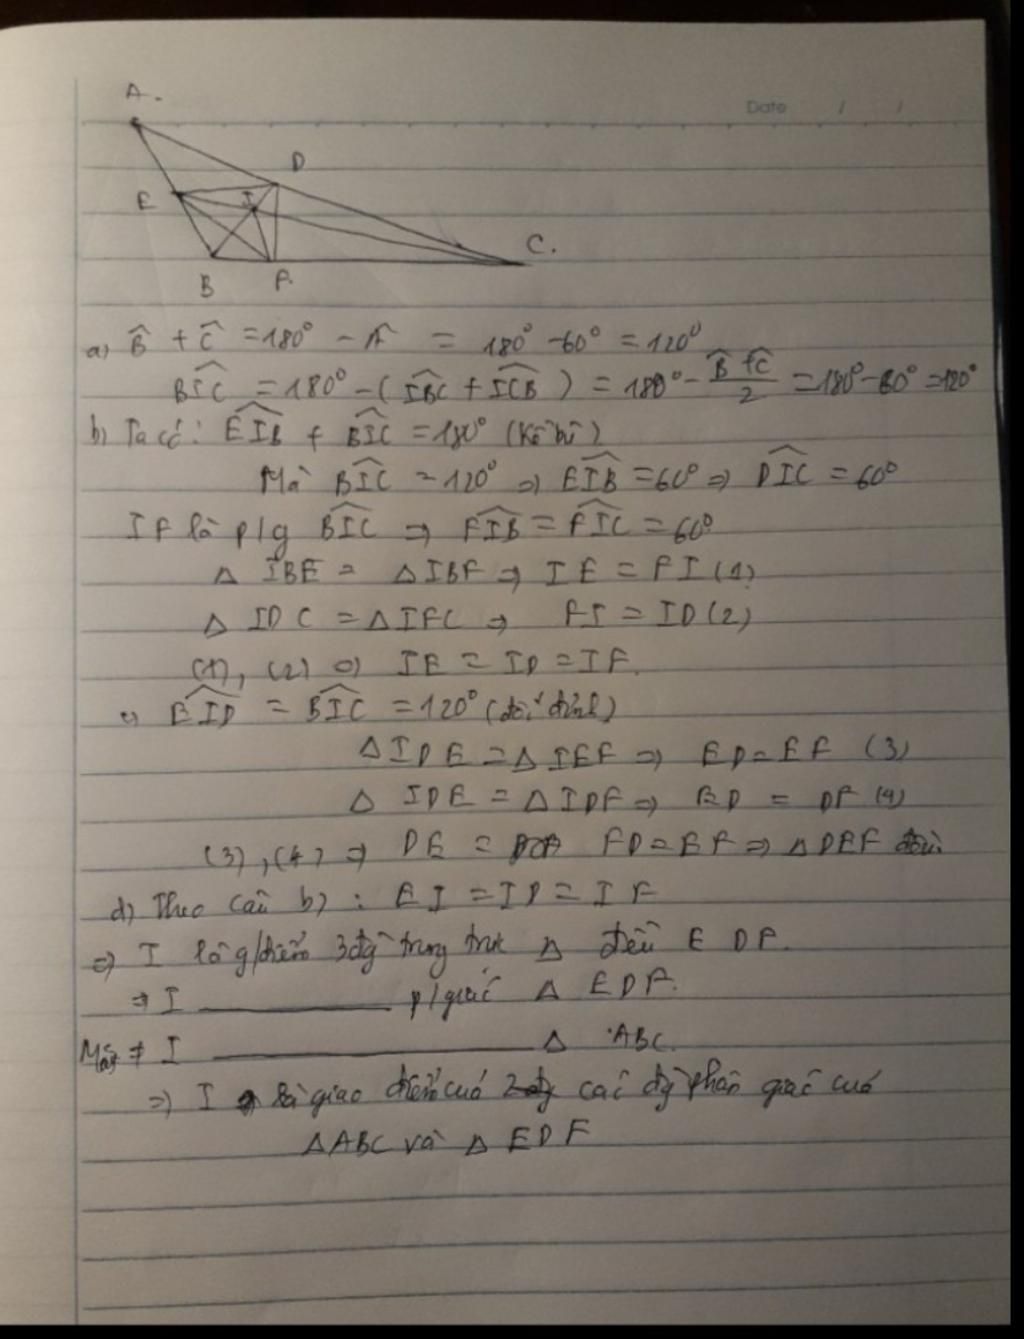 A.
Date / /
D
E
I
C.
B
F.
a) B̂ + Ĉ = 180° - Â = 180° - 60° = 120°
BIC = 180° - (IBC + ICB) = 180° - (B̂ + Ĉ)/2 = 180° - 60° = 120°
b) Ta có: EIB + BIC = 180° (Kề bù)
Mà BIC = 120° => EIB = 60° => DIC = 60°
IF là p/g BIC => FIB = FIC = 60°
Δ IBE = Δ IBF => IE = FI (1)
Δ IDC = Δ IFC => FI = ID (2)
(1), (2) => IE = ID = IF.
c) EID = BIC = 120° (đối đỉnh)
Δ IDE = Δ IEF => ED = EF (3)
Δ IDE = Δ IDF => ED = DF (4)
(3), (4) => DE = FD = EF => Δ DEF đều
d) Theo câu b) : EI = ID = IF
=> I là g/điểm 3 đg trung trực Δ đều EDF.
=> I p/giác Δ EDF.
Mặt ≠ I Δ ABC.
=> I là giao điểm cuả các đg phân giác cuả
ΔABC và Δ EDF